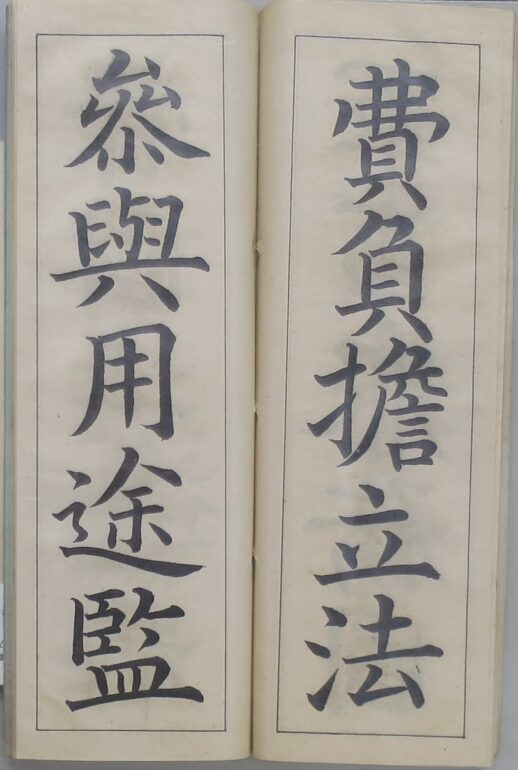 費負擔立法
參與用途監